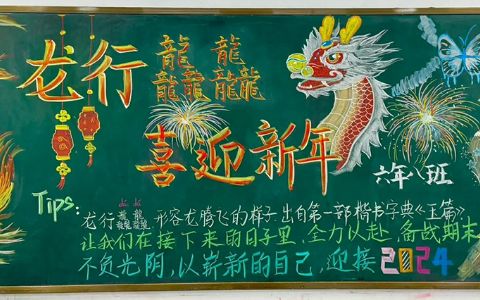 龙行龘龘
喜迎新年
六年八班
Tips: 龙行龘龘 形容龙腾飞的样子 出自第一部楷书字典《玉篇》
让我们在接下来的日子里,全力以赴,备战期末
不负光阴,以崭新的自己,迎接2024